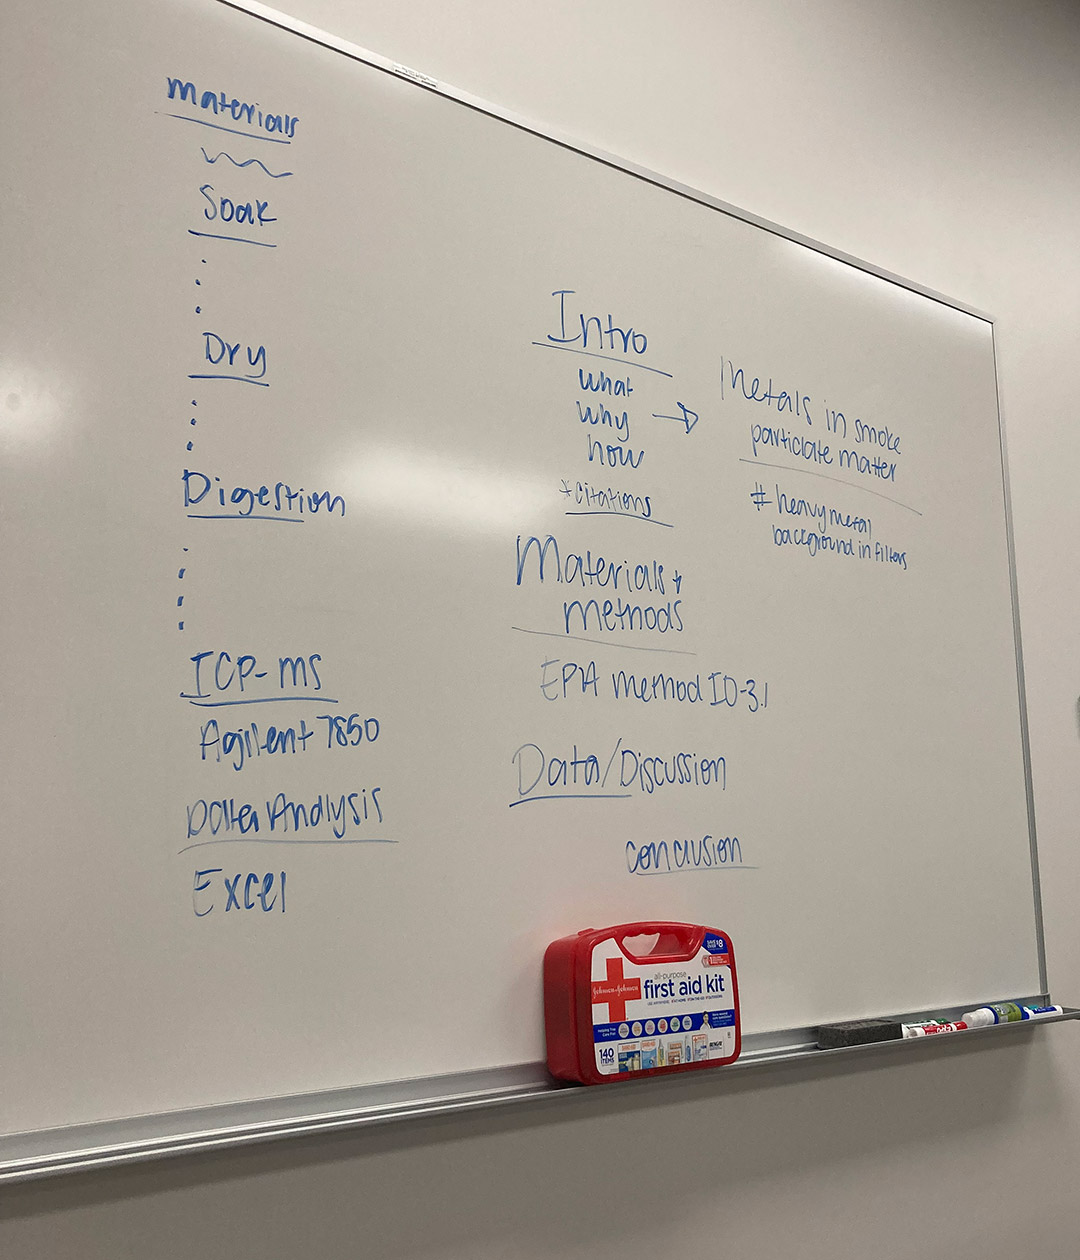 Materials
Soak
Dry
Digestion
ICP-MS
Agilent 7850
Data Analysis
Excel
Intro
what
why →
how
*citations
Materials +
methods
EPA method IO-3.1
Data/Discussion
conclusion
Metals in smoke
particlate matter
# heavy metal
background in filters
SAVE $8
all-purpose
Johnson & Johnson
first aid kit
140
ITEMS